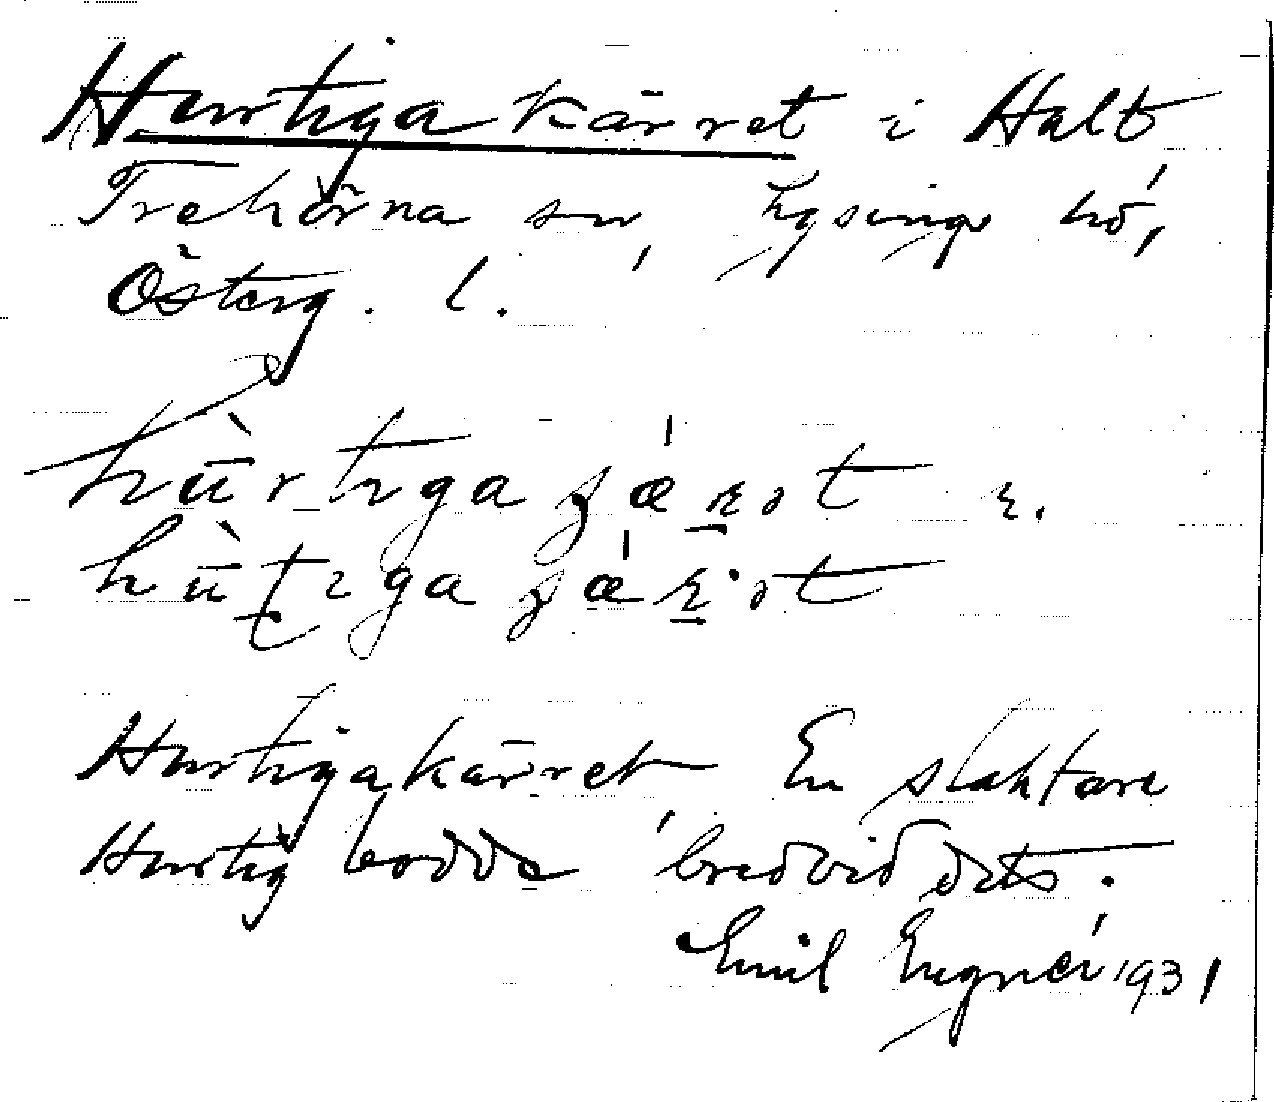 Hurtiga kärret i Halt,
Trehörna sn, Lysings hd,
Österg. l.
hùrtiga
Hurtiga kärret, En slaktare
Hurtig bodde bredvid det.
Emil Engnér 1931